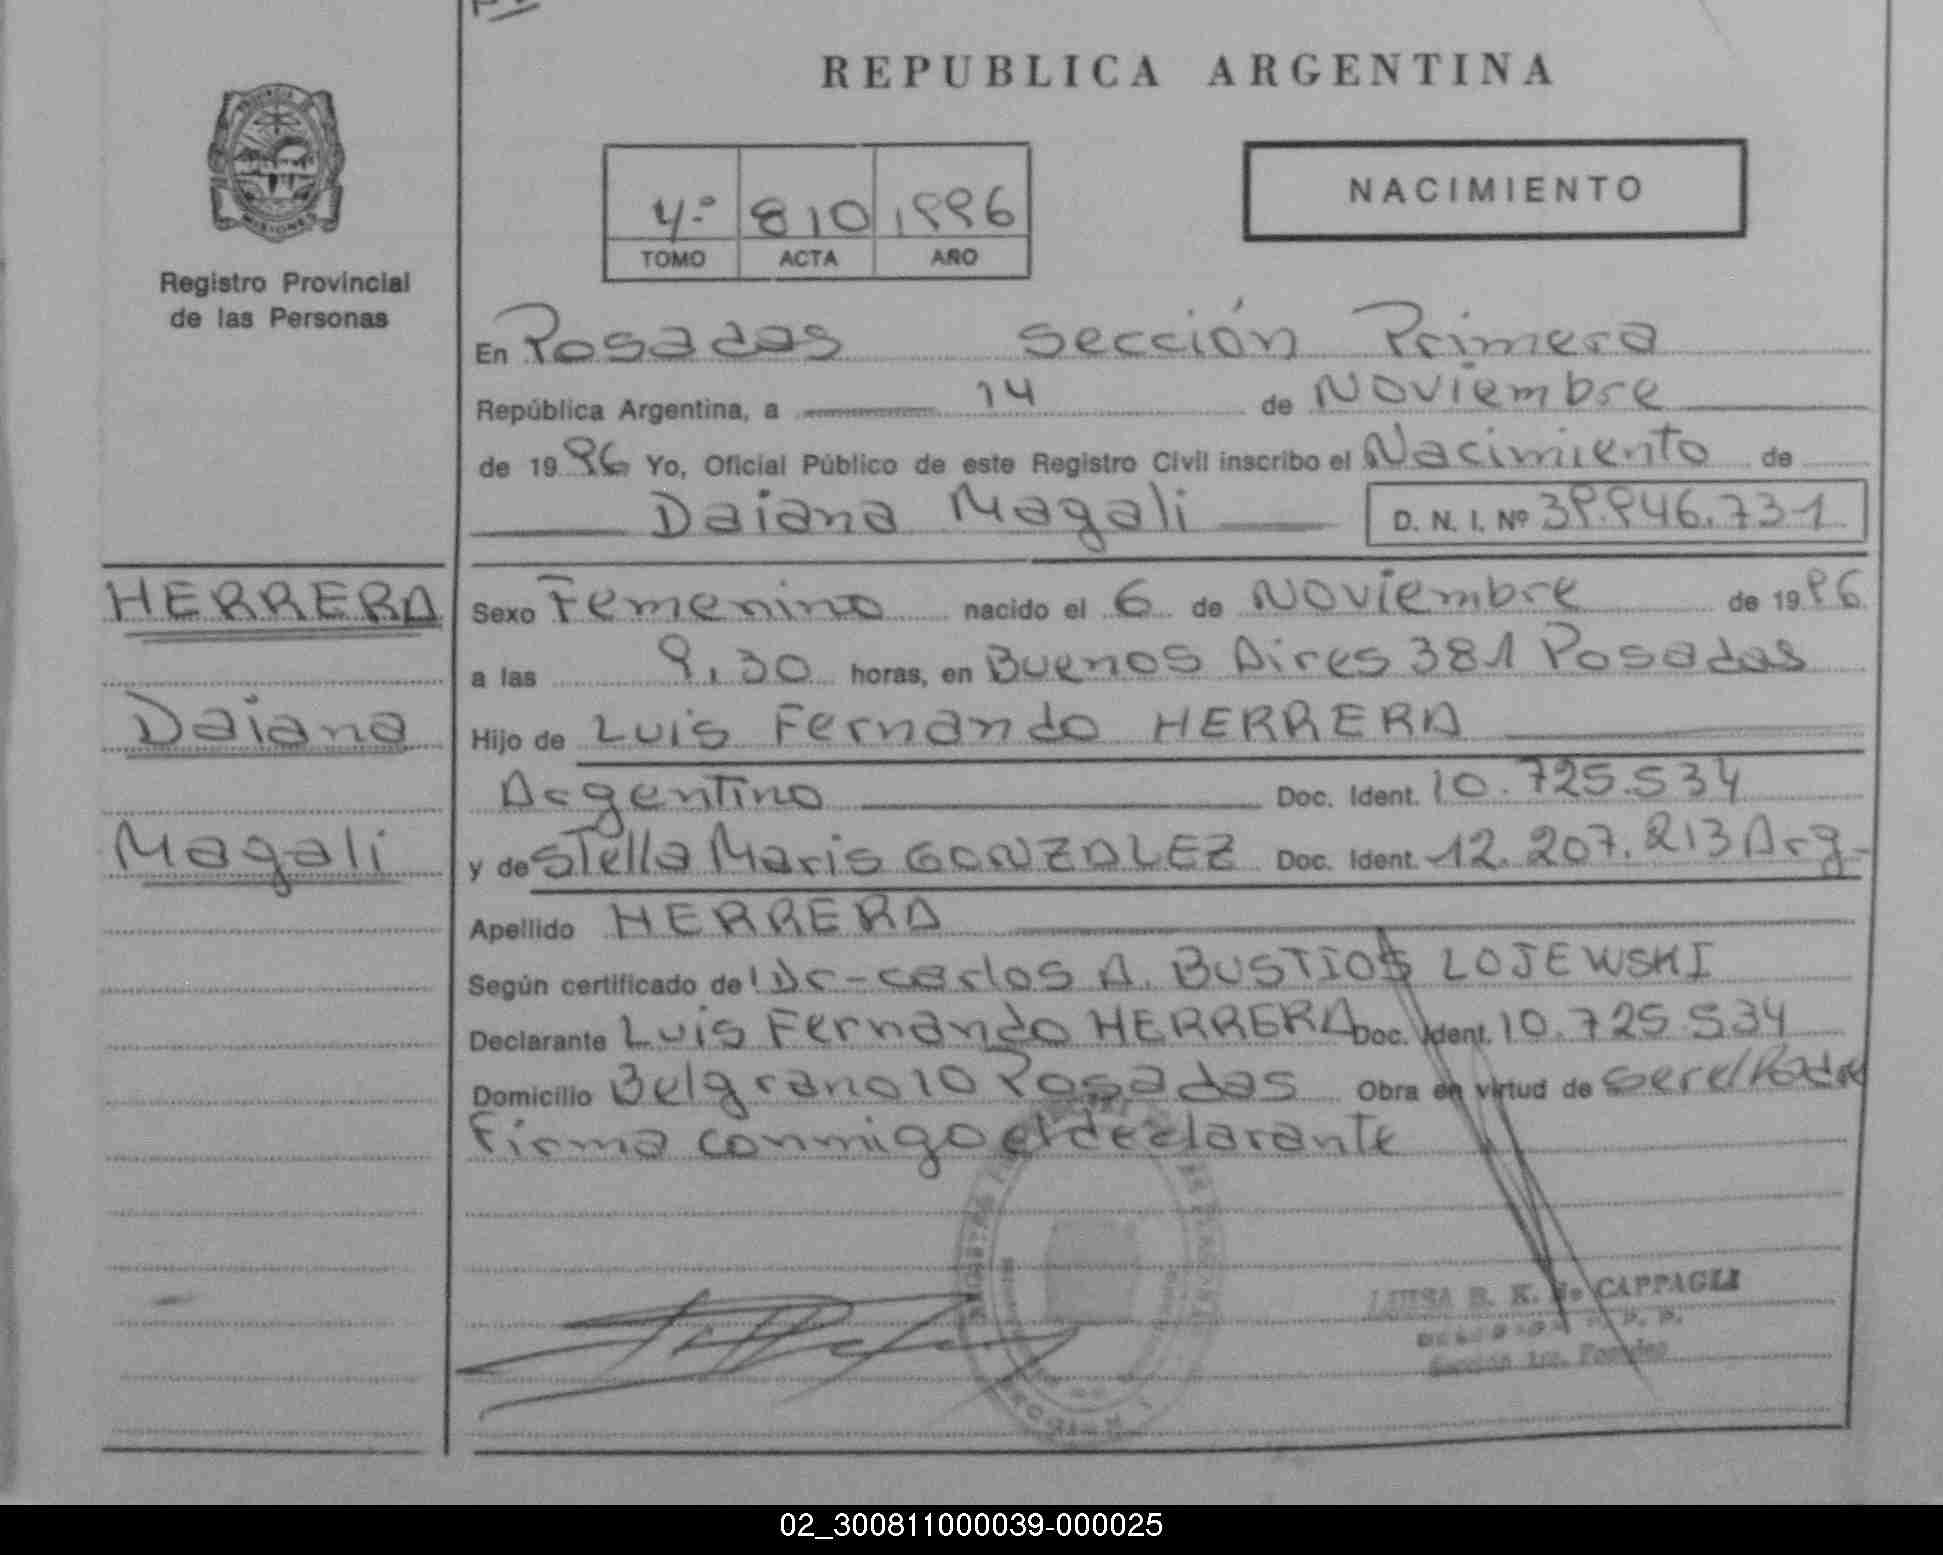 REPUBLICA ARGENTINA
NACIMIENTO
4.º 810 1996
TOMO ACTA AÑO
Registro Provincial
de las Personas
En Posadas sección Primera
República Argentina, a 14 de Noviembre
de 1996 Yo, Oficial Público de este Registro Civil inscribo el Nacimiento de
Daiana Magali D. N. I. Nº 39.946.731
HERRERA
Daiana
Magali
Sexo Femenino nacido el 6 de Noviembre de 1996
a las 9,30 horas, en Buenos Aires 381 Posadas
Hijo de Luis Fernando HERRERA
Argentino Doc. Ident. 10.725.534
y de Stella Maris GONZALEZ Doc. Ident. 12.207.213 Arg.
Apellido HERRERA
Según certificado de Dr-carlos A. BUSTIOS LOJEWSKI
Declarante Luis Fernando HERRERA Doc. Ident. 10.725.534
Domicilio Belgrano 10 Posadas Obra en virtud de ser el Padre
Firma conmigo el declarante
LUISA B. K. de CAPPAGLI
Sección 1ra. Posadas
02_300811000039-000025